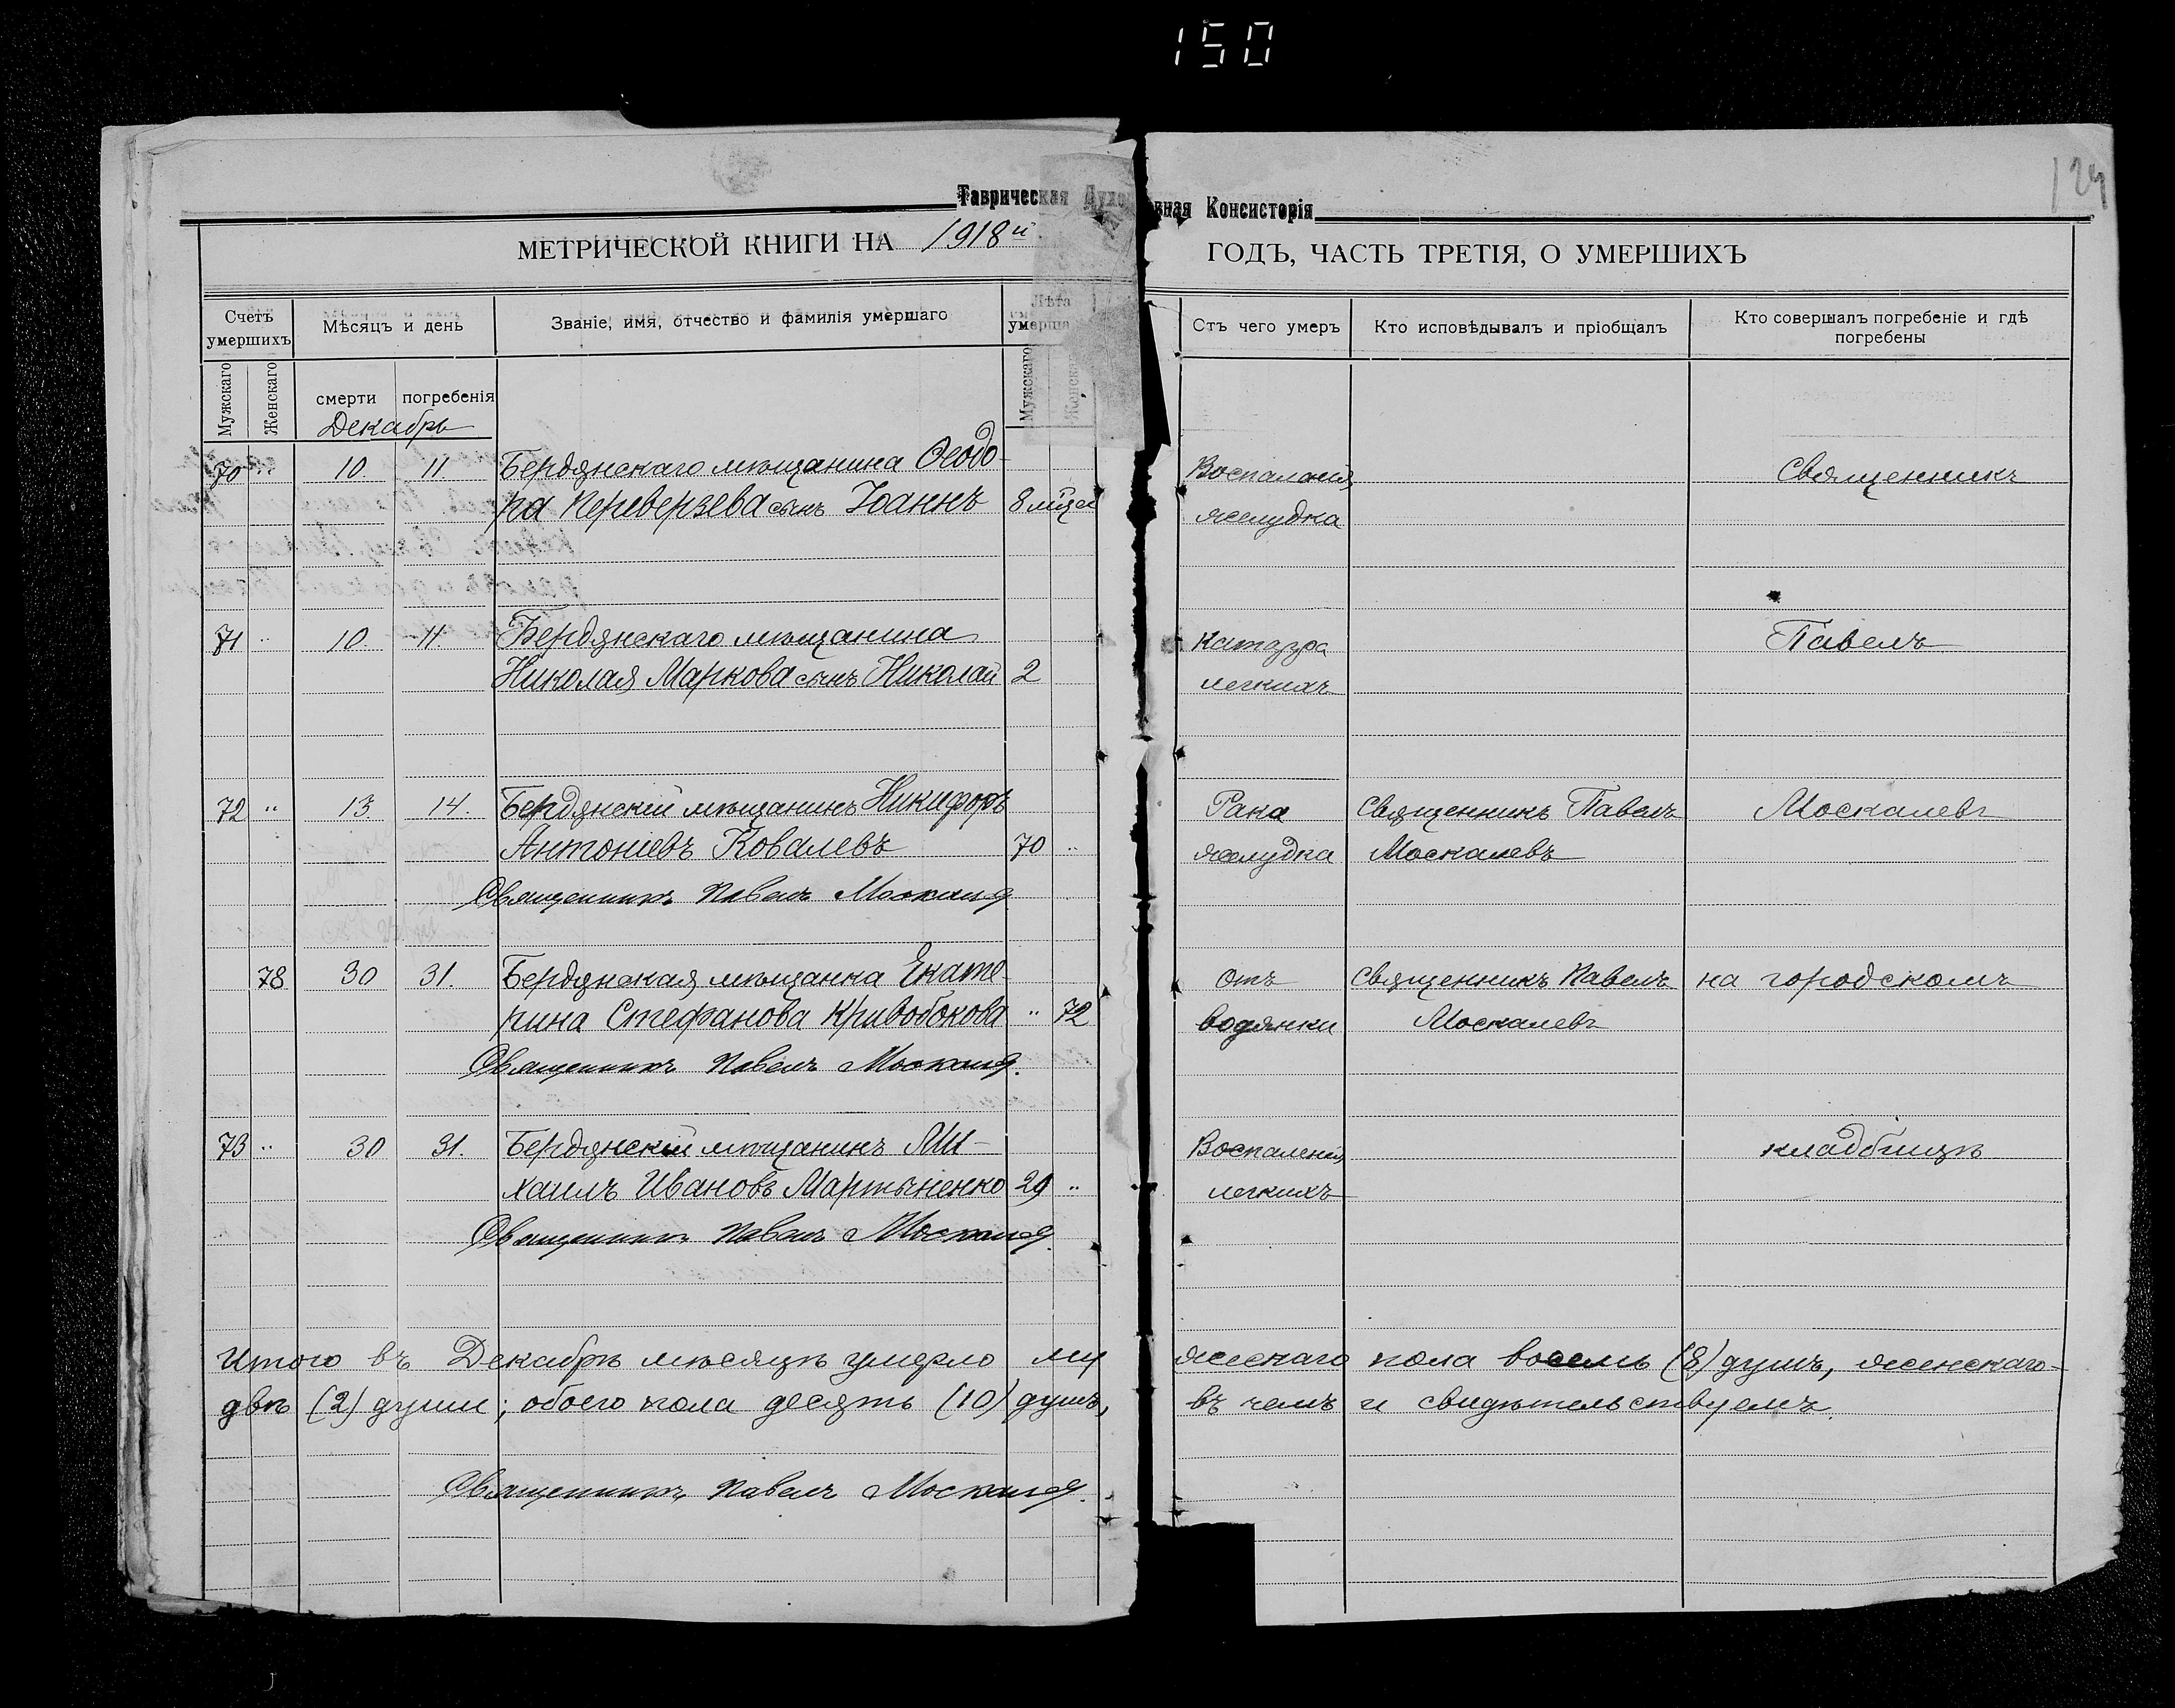 150
124
Таврическая Духовная Консисторія
МЕТРИЧЕСКОЙ КНИГИ НА 1918й ГОДЪ, ЧАСТЬ ТРЕТІЯ, О УМЕРШИХЪ
Счетъ умершихъ
Мѣсяцъ и день
Званіе, имя, отчество и фамилія умершаго
Лѣта умерша
Отъ чего умеръ
Кто исповѣдывалъ и пріобщалъ
Кто совершалъ погребеніе и гдѣ погребены
Мужскаго
Женскаго
смерти
погребенія
Мужскаго
Женска
Декабрь
70 " 10. 11. Бердянскаго мѣщанина Ѳеодо- Воспаленія Священникъ
ра Переверзева сынъ Іоаннъ 8 мѣс желудка
71 " 10. 11. Бердянскаго мѣщанина Катарра Павелъ
Николая Маркова сынъ Николай 2 легкихъ
72 " 13. 14. Бердянскій мѣщанинъ Никифоръ Рака Священникъ Павелъ Москалевъ
Антоніевъ Ковалевъ 70 " желудка Москалевъ
Священникъ Павелъ Москалев
78 30 31. Бердянская мѣщанка Екате- Отъ Священникъ Павелъ на городскомъ
рина Стефанова Кривобокова " 72 водянки Москалевъ
Священникъ Павелъ Москалев.
73 " 30 31. Бердянскій мѣщанинъ Ми- Воспаленія кладбищѣ
хаилъ Ивановъ Мартыненко 29 " легкихъ
Священникъ Павелъ Москалев.
Итого въ Декабрѣ мѣсяцѣ умерло мужескаго пола восемь (8) душъ, женскаго-
двѣ (2) души; обоего пола десять (10) душъ, въ чемъ и свидѣтельствуемъ.
Священникъ Павелъ Москалев.